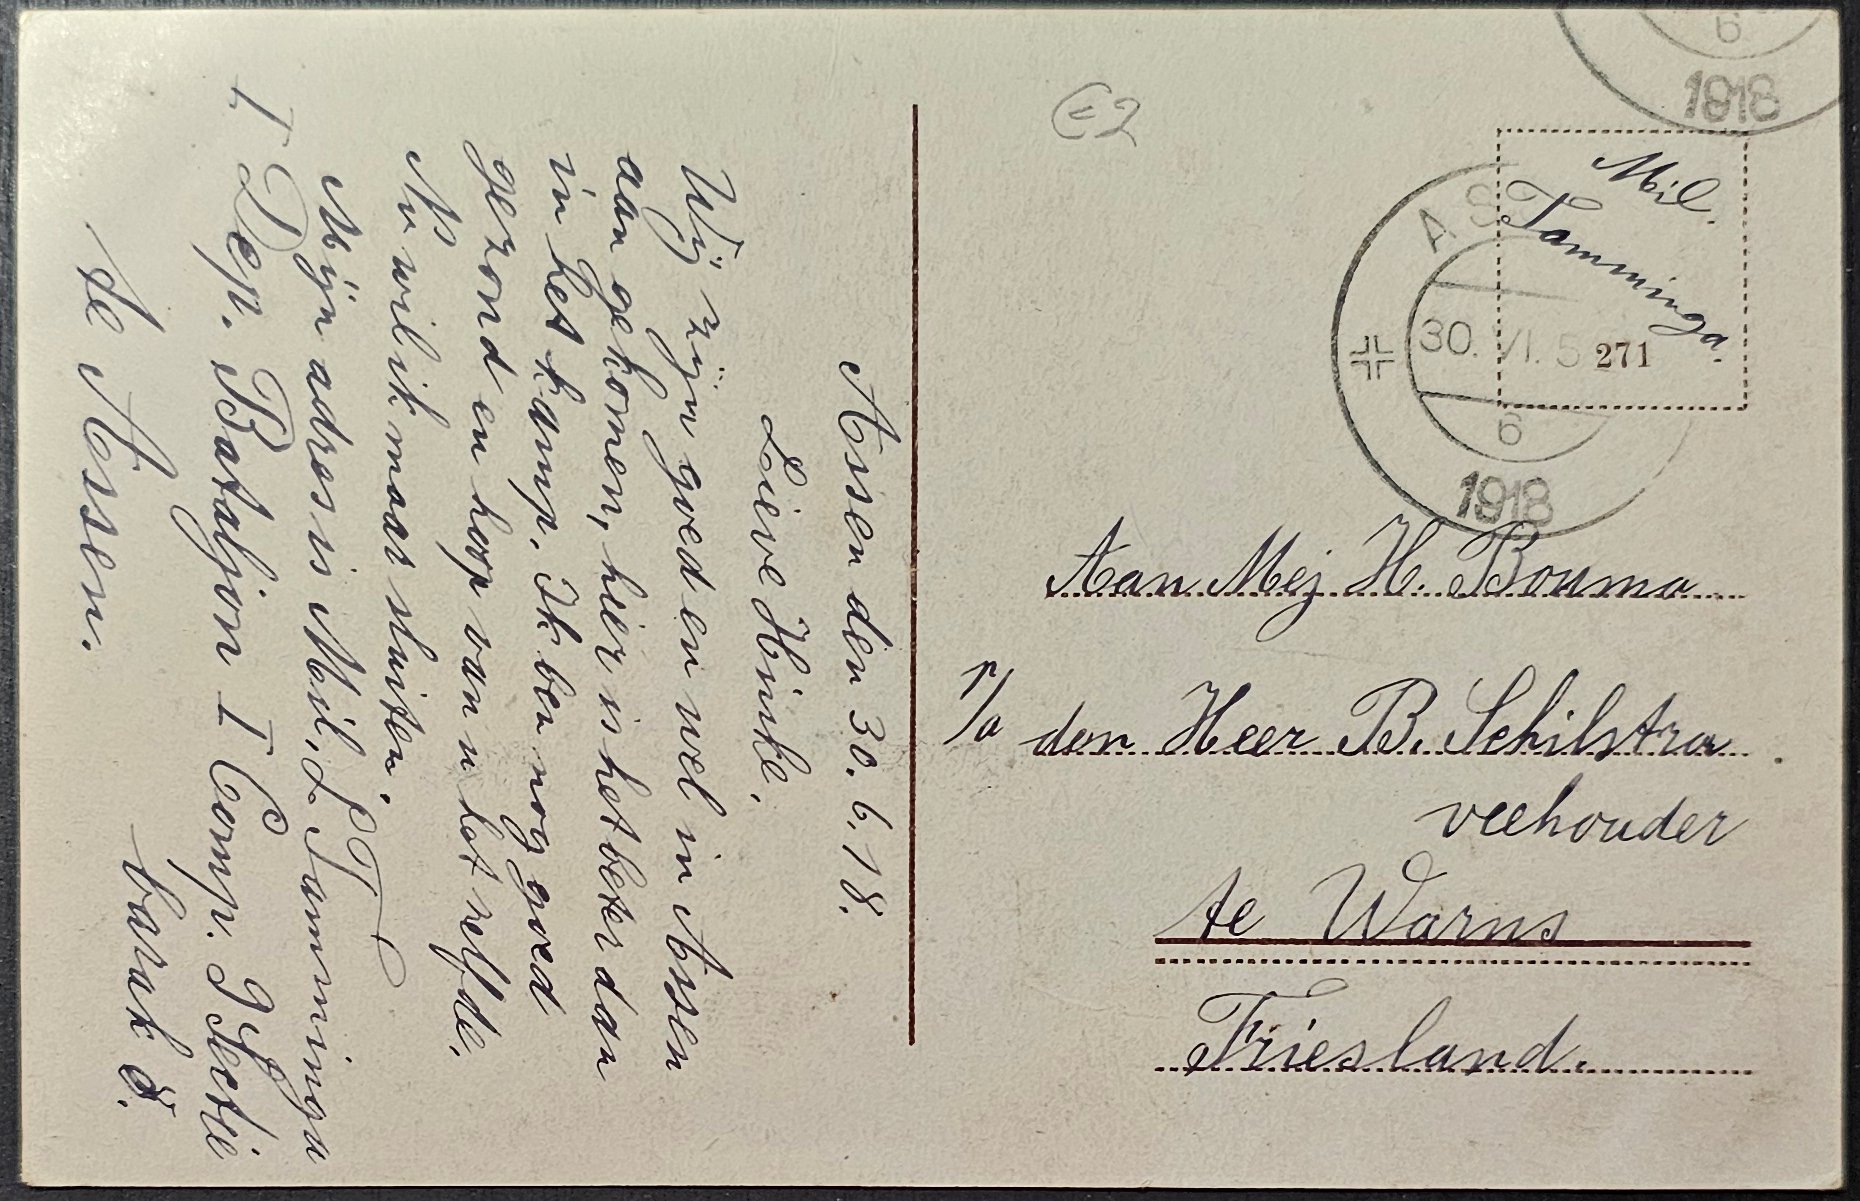 Assen den 30. 6. 18.
Lieve Hinke.
Wij zijn goed en wel in Assen
aan gekomen, hier is het beter dan
in het kamp. Ik ben nog goed
gezond en hoop van u het zelfde.
Nu wil ik maar sluiten.
Mijn adres is Mil. L. Tamminga
I Dep. Bataljon I Comp. 3e Sectie
te Assen. barak 8.
E2
6
1918
Mil.
Tamminga.
AS
30. VI. 5
271
6
1918
Aan Mej H. Bouma
p/a den Heer B. Schilstra
veehouder
te Warns
Friesland.